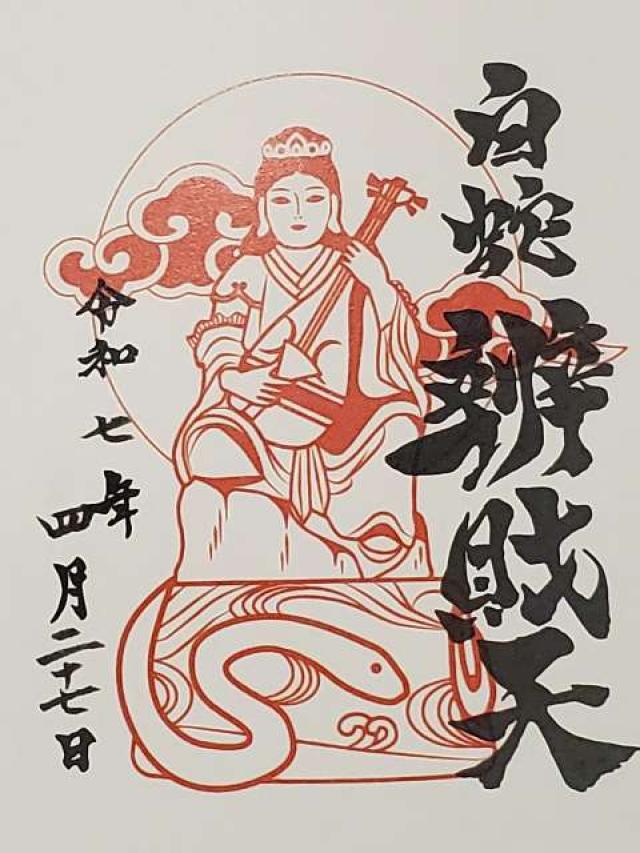 白蛇辨財天
令和七年
四月二十七日